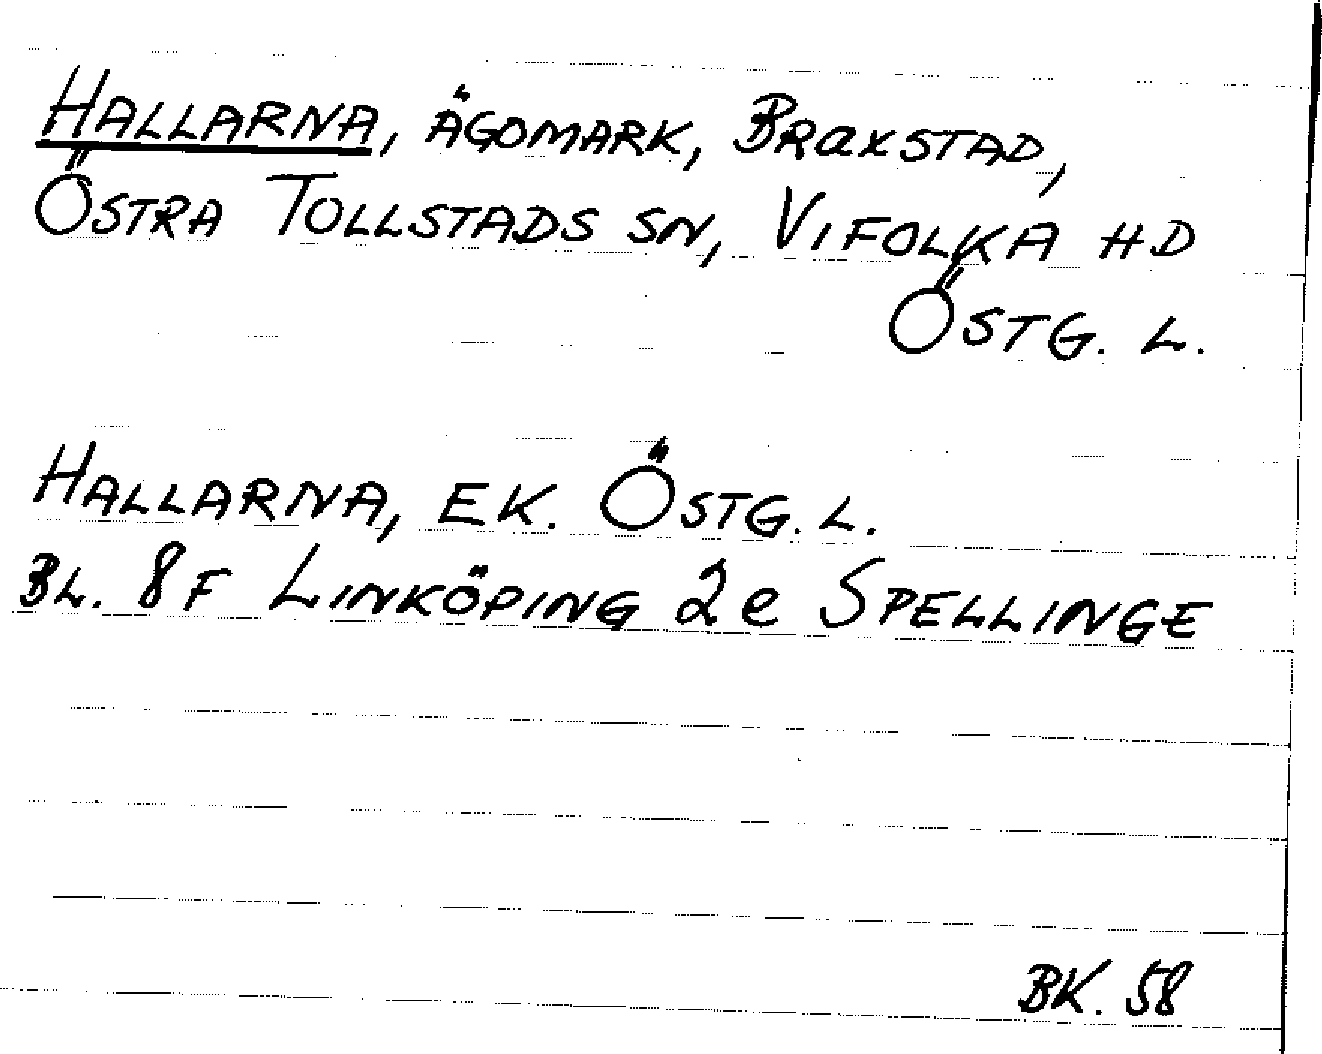 HALLARNA, ÄGOMARK, BRaXSTAD,
ÖSTRA TOLLSTADS SN, VIFOLKA HD
ÖSTG. L.
HALLARNA, EK. ÖSTG. L.
BL. 8F LINKÖPING 2e SPELLINGE
BK. 58